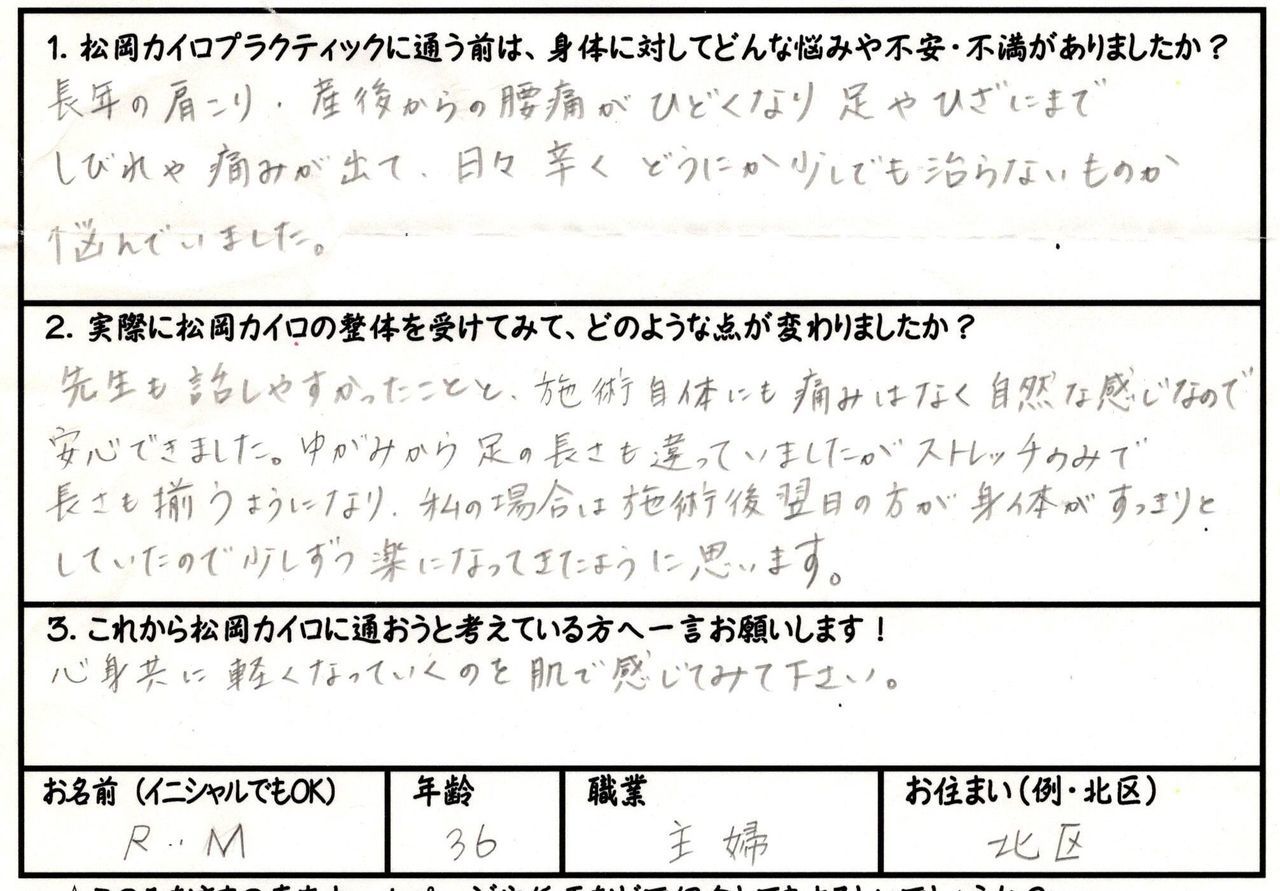 1. 松岡カイロプラクティックに通う前は、身体に対してどんな悩みや不安・不満がありましたか？
長年の肩こり、産後からの腰痛がひどくなり足やひざにまで
しびれや痛みが出て、日々辛くどうにか少しでも治らないものか
悩んでいました。
2. 実際に松岡カイロの整体を受けてみて、どのような点が変わりましたか？
先生も話しやすかったことと、施術自体にも痛みはなく自然な感じなので
安心できました。ゆがみから足の長さも違っていましたがストレッチのみで
長さも揃うようになり、私の場合は施術後翌日の方が身体がすっきりと
していたので少しずつ楽になってきたように思います。
3. これから松岡カイロに通おうと考えている方へ一言お願いします！
心身共に軽くなっていくのを肌で感じてみて下さい。
お名前（イニシャルでもOK） 年齢 職業 お住まい（例・北区）
R.M 36 主婦 北区